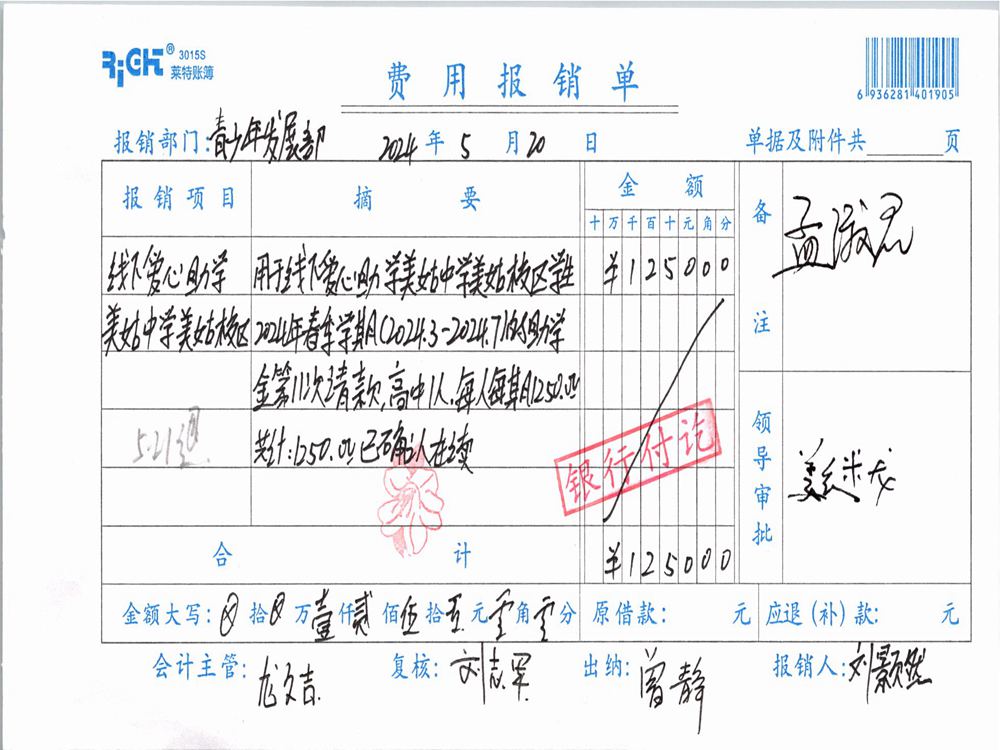 RiGHT® 3015S
莱特账簿
费用报销单
6 936281 401905
报销部门:青少年发展部 2024年5月20日 单据及附件共 页
报销项目 摘要 金额 备注
十万千百十元角分
线下爱心助学 用于线下爱心助学美姑中学美姑校区学生 ¥125000
美姑中学美姑校区 2024年春季学期(2024.3-2024.7)的助学
金第11次请款,高中1人,每人每期1250.00
5.21 共计:1250.00已确认在读
银行付讫
领导审批
合计 ¥125000
金额大写: 拾 万壹仟贰佰伍拾 元零角零分 原借款: 元 应退(补)款: 元
会计主管:龙文吉 复核:刘志军 出纳:曾静 报销人:刘颢然